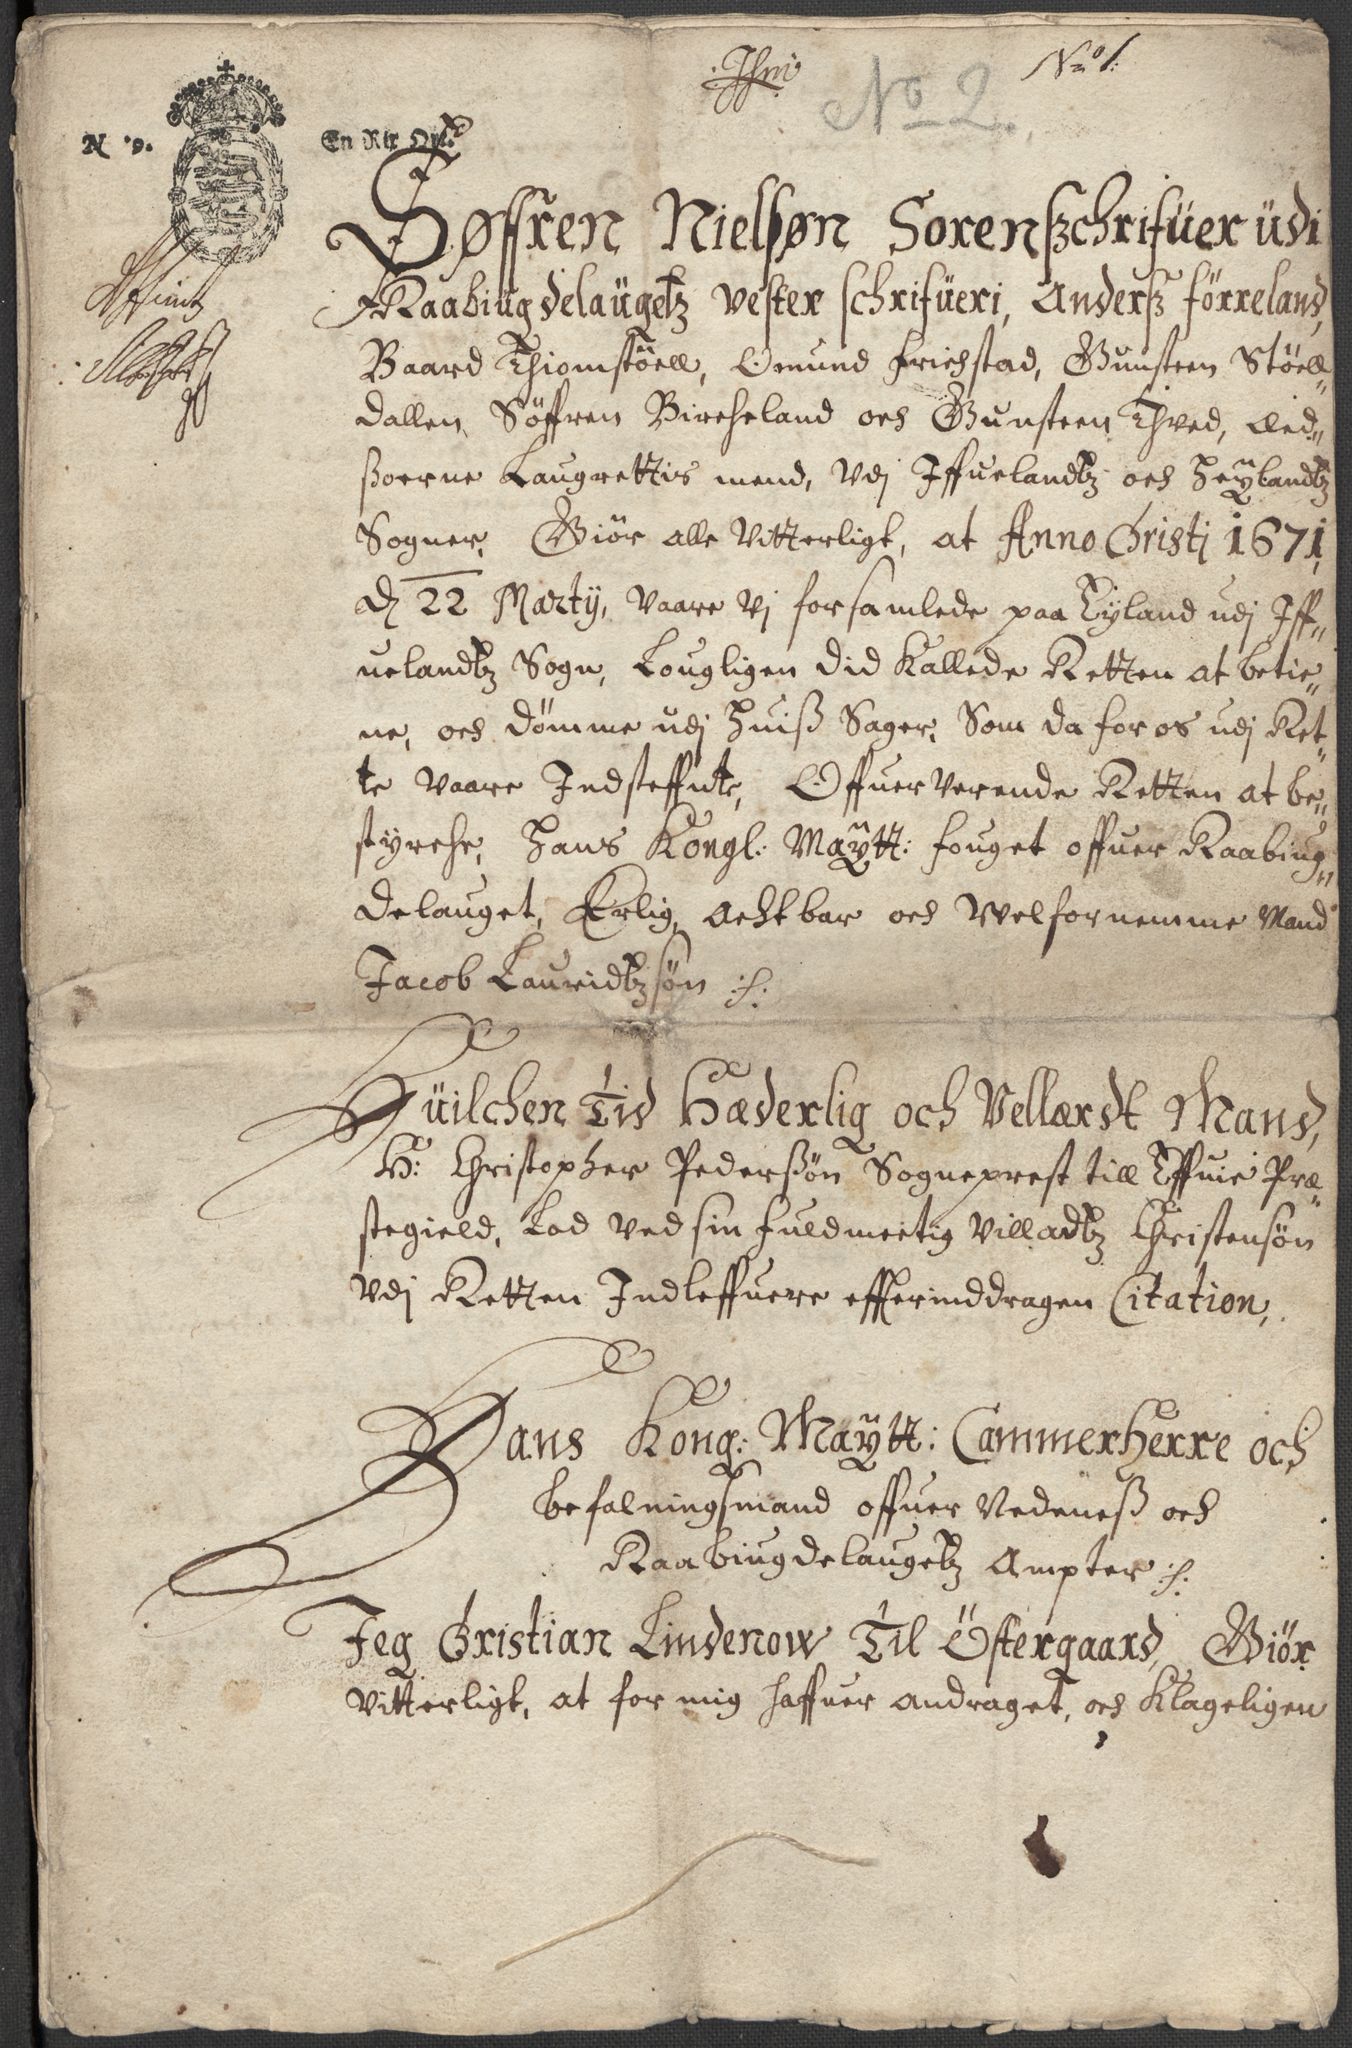 No 1:
No 2.
N 9.
En Rix Ort.
Søffren Nielsøn Sorenschrifuer udi
Raabiugdelaugetz vester schrifueri, Anderss förreland,
Baard Thiomstöell, Omund Frichstad, Gunsteen Stöell„
dallen, Söffren Bircheland och Gunsteen Thved, Eed„
ssoerne Laugrettis mend, Vdj Iffuelandtz och Heÿlandtz
Sogner, Giör alle Vitterligt, at Anno Christj 1671,
d 22 Martÿ, vaare Vj forsamlede paa Tyland udj Iff„
uelandtz Sogn, Lougligen did Kallede Retten at betie„
ne, och dömme udj huiss Sager, Som da for os udj Ret„
te vaare Indsteffnte, Offuerverende Retten at be„
styrche, Hans Kongl: Maÿtt: fouget offuer Raabiug„
delauget, Erlig, Acktbar och Welfornemme Mand
Jacob Lauridtzsön :/:
Huilchen Tid Hæderlig och Vellærdt Mand,
H: Christopher Pederssön Sogneprest till Effuie Præ„
stegield, Lod ved sin fuldmectig Villadtz Christensön
Vdj Retten Indleffuere effterinddragen Citation,
Hans Kong: Maÿtt: Cammerherre och
befalningsmand offuer Nedeness och
Raabiugdelaugetz Ampter :/:
Jeg Christian Lindenow Til Östergaard, Giör
Vitterligt, at for mig haffuer andraget, och Klageligen